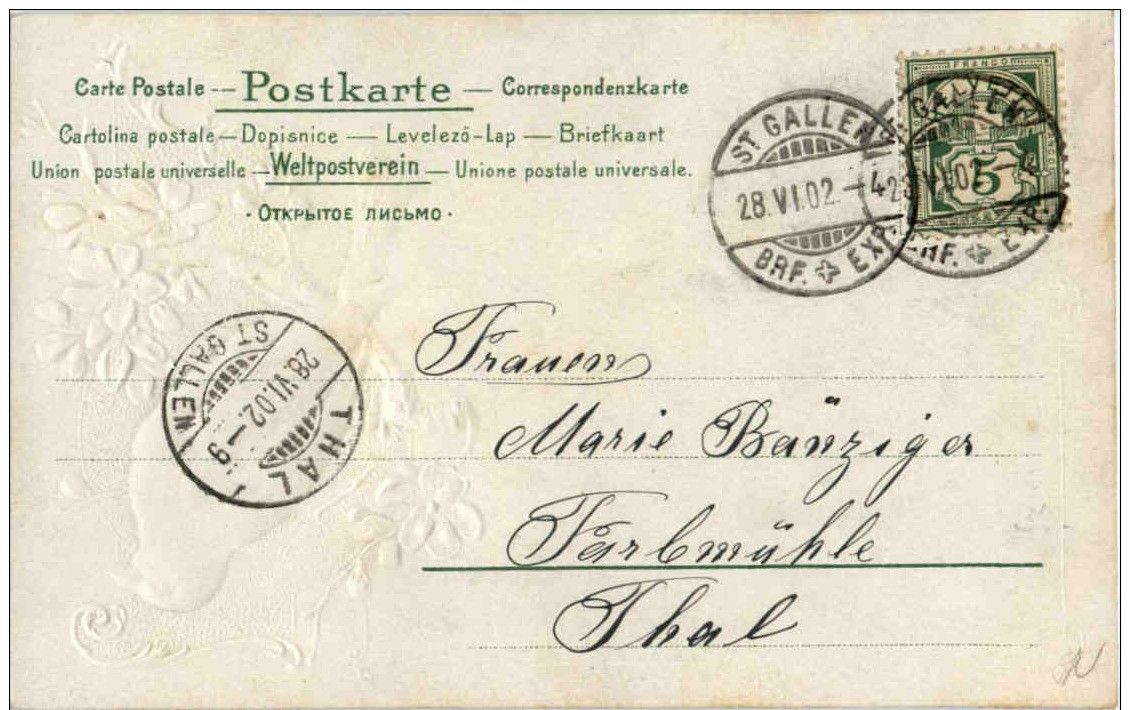 Carte Postale -- Postkarte — Correspondenzkarte
Cartolina postale — Dopisnice — Levelező-Lap — Briefkaart
Union postale universelle — Weltpostverein — Unione postale universale.
· ОТКРЫТОЕ ПИСЬМО ·
FRANCO
5
ST GALLEN
28.VI.02.-4
BRF. EXP.
GALLEN
VI.02.
BRF. EXP.
ST GALLEN
28.VI.02.-9
THAL
Frauen
Marie Bänziger
Farbmühle
Thal